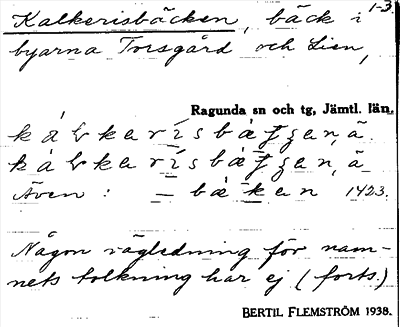 1-3.
Kalkerisbäcken, bäck i
byarna Torsgård och Lien,
Ragunda sn och tg, Jämtl. län.
Även : – bäkan 1423.
Någon vägledning för nam-
nets tolkning har ej (forts.)
BERTIL FLEMSTRÖM 1938.